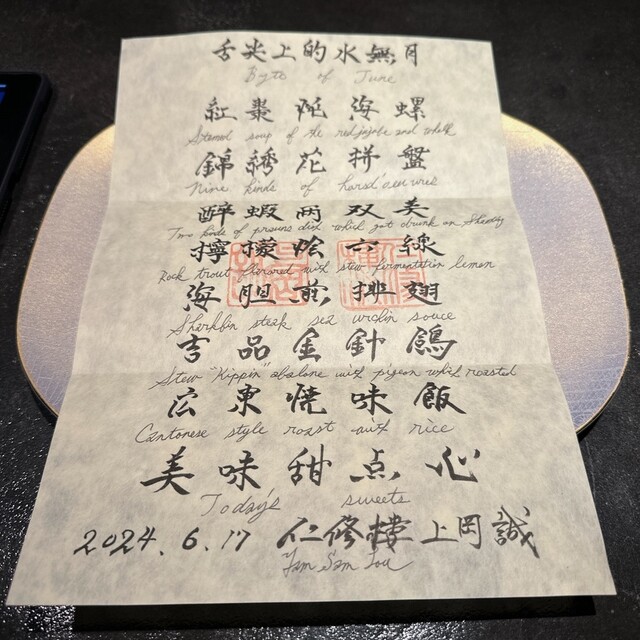 舌尖上的水無月
Byte of June
紅棗炖海螺
Steamed soup of the red jujube and whelk
錦綉花拼盤
Nine kinds of horsd'oeuvres
醉蝦両双美
Two kinds of prawns dish which got drunk on Sherry
檸檬燴六線
Rock trout flavored with stew fermentation lemon
海胆煎排翅
Sharkfin steak sea urchin souce
吉品金針鴿
Stew "Kippin" abalone with pigeon which roasted
広東焼味飯
Cantonese style roast with rice
美味甜点心
Today's sweets
2024.6.17 仁修樓 上岡誠
Yan Sau Lou